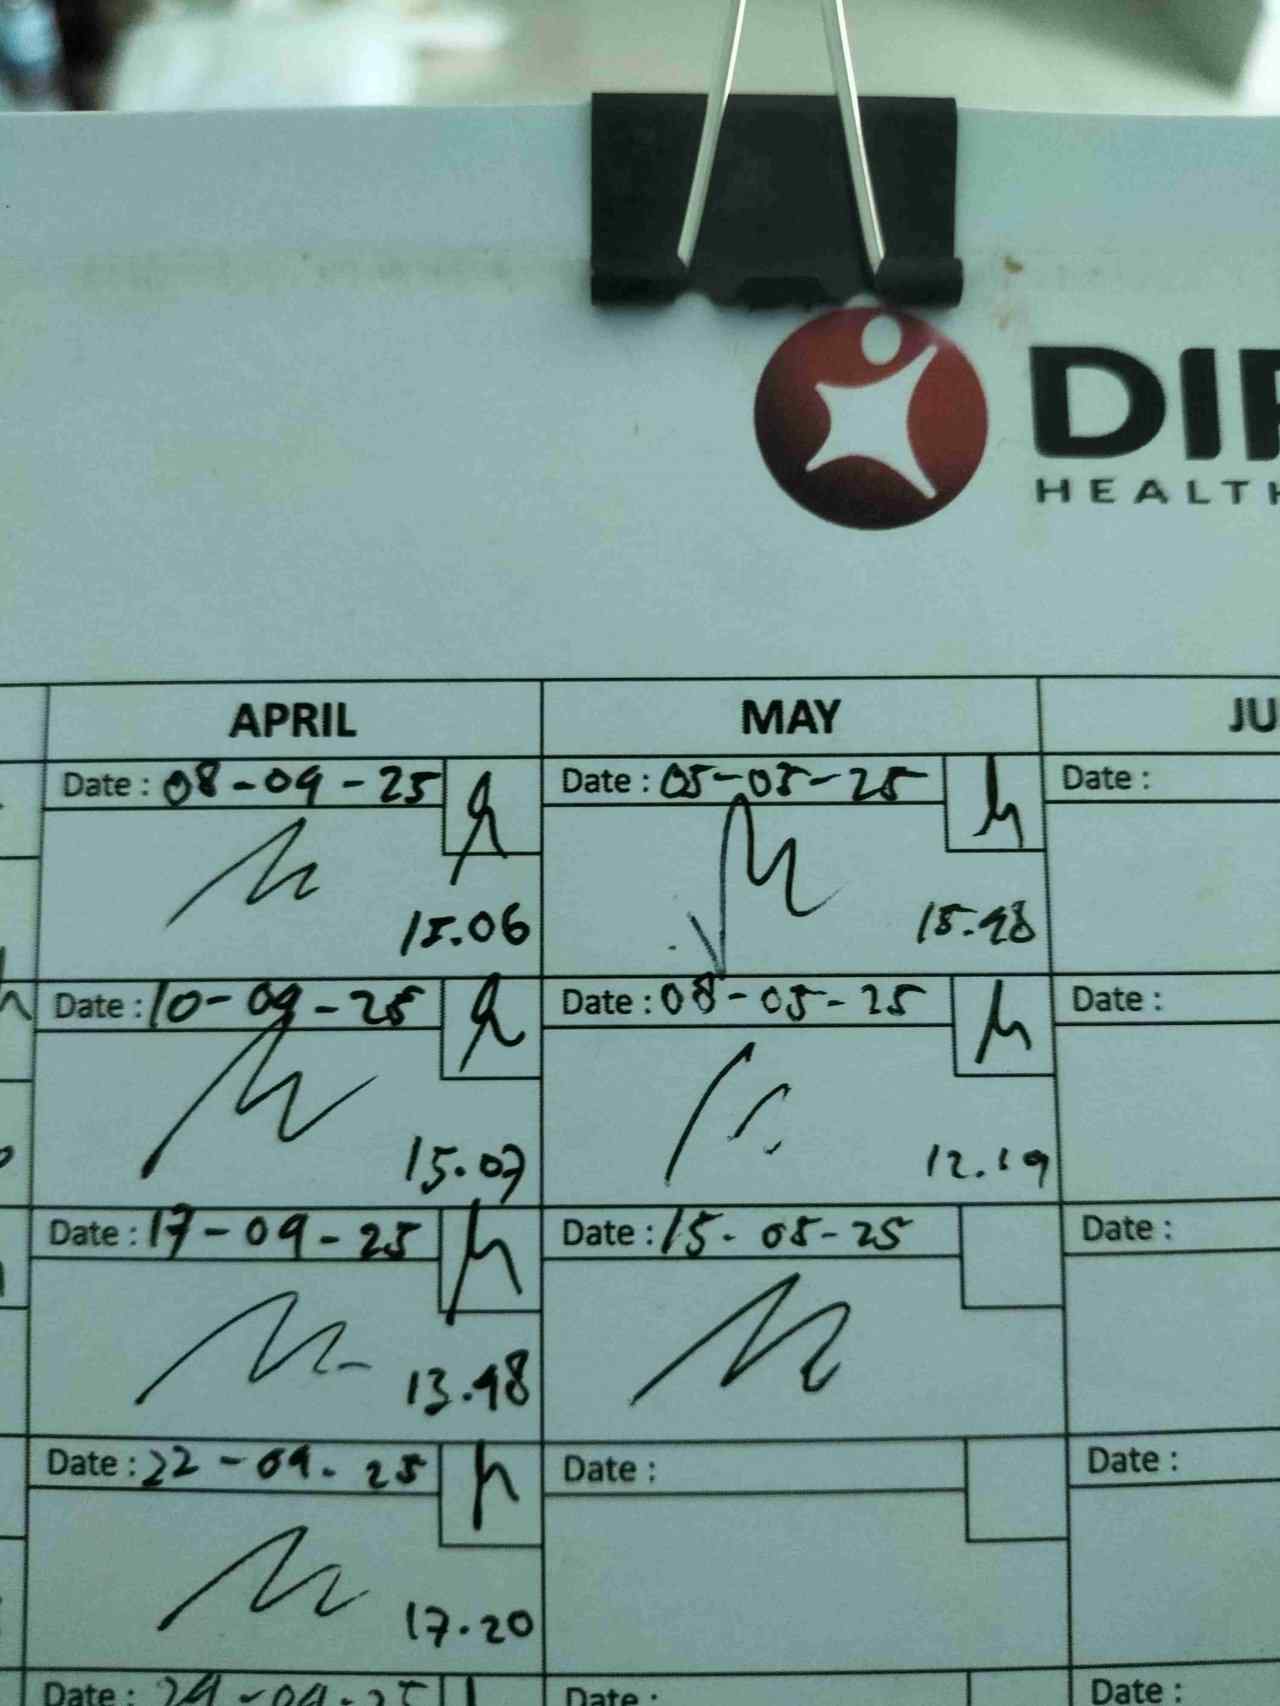 DI
HEALTH
APRIL MAY JU
Date : 08-04-25 Date : 05-05-25 Date :
15.06 15.48
Date : 10-04-25 Date : 08-05-25 Date :
15.07 12.19
Date : 17-04-25 Date : 15-05-25 Date :
13.48
Date : 22-04-25 Date : Date :
17.20
Date : 24-04-25 Date : Date :